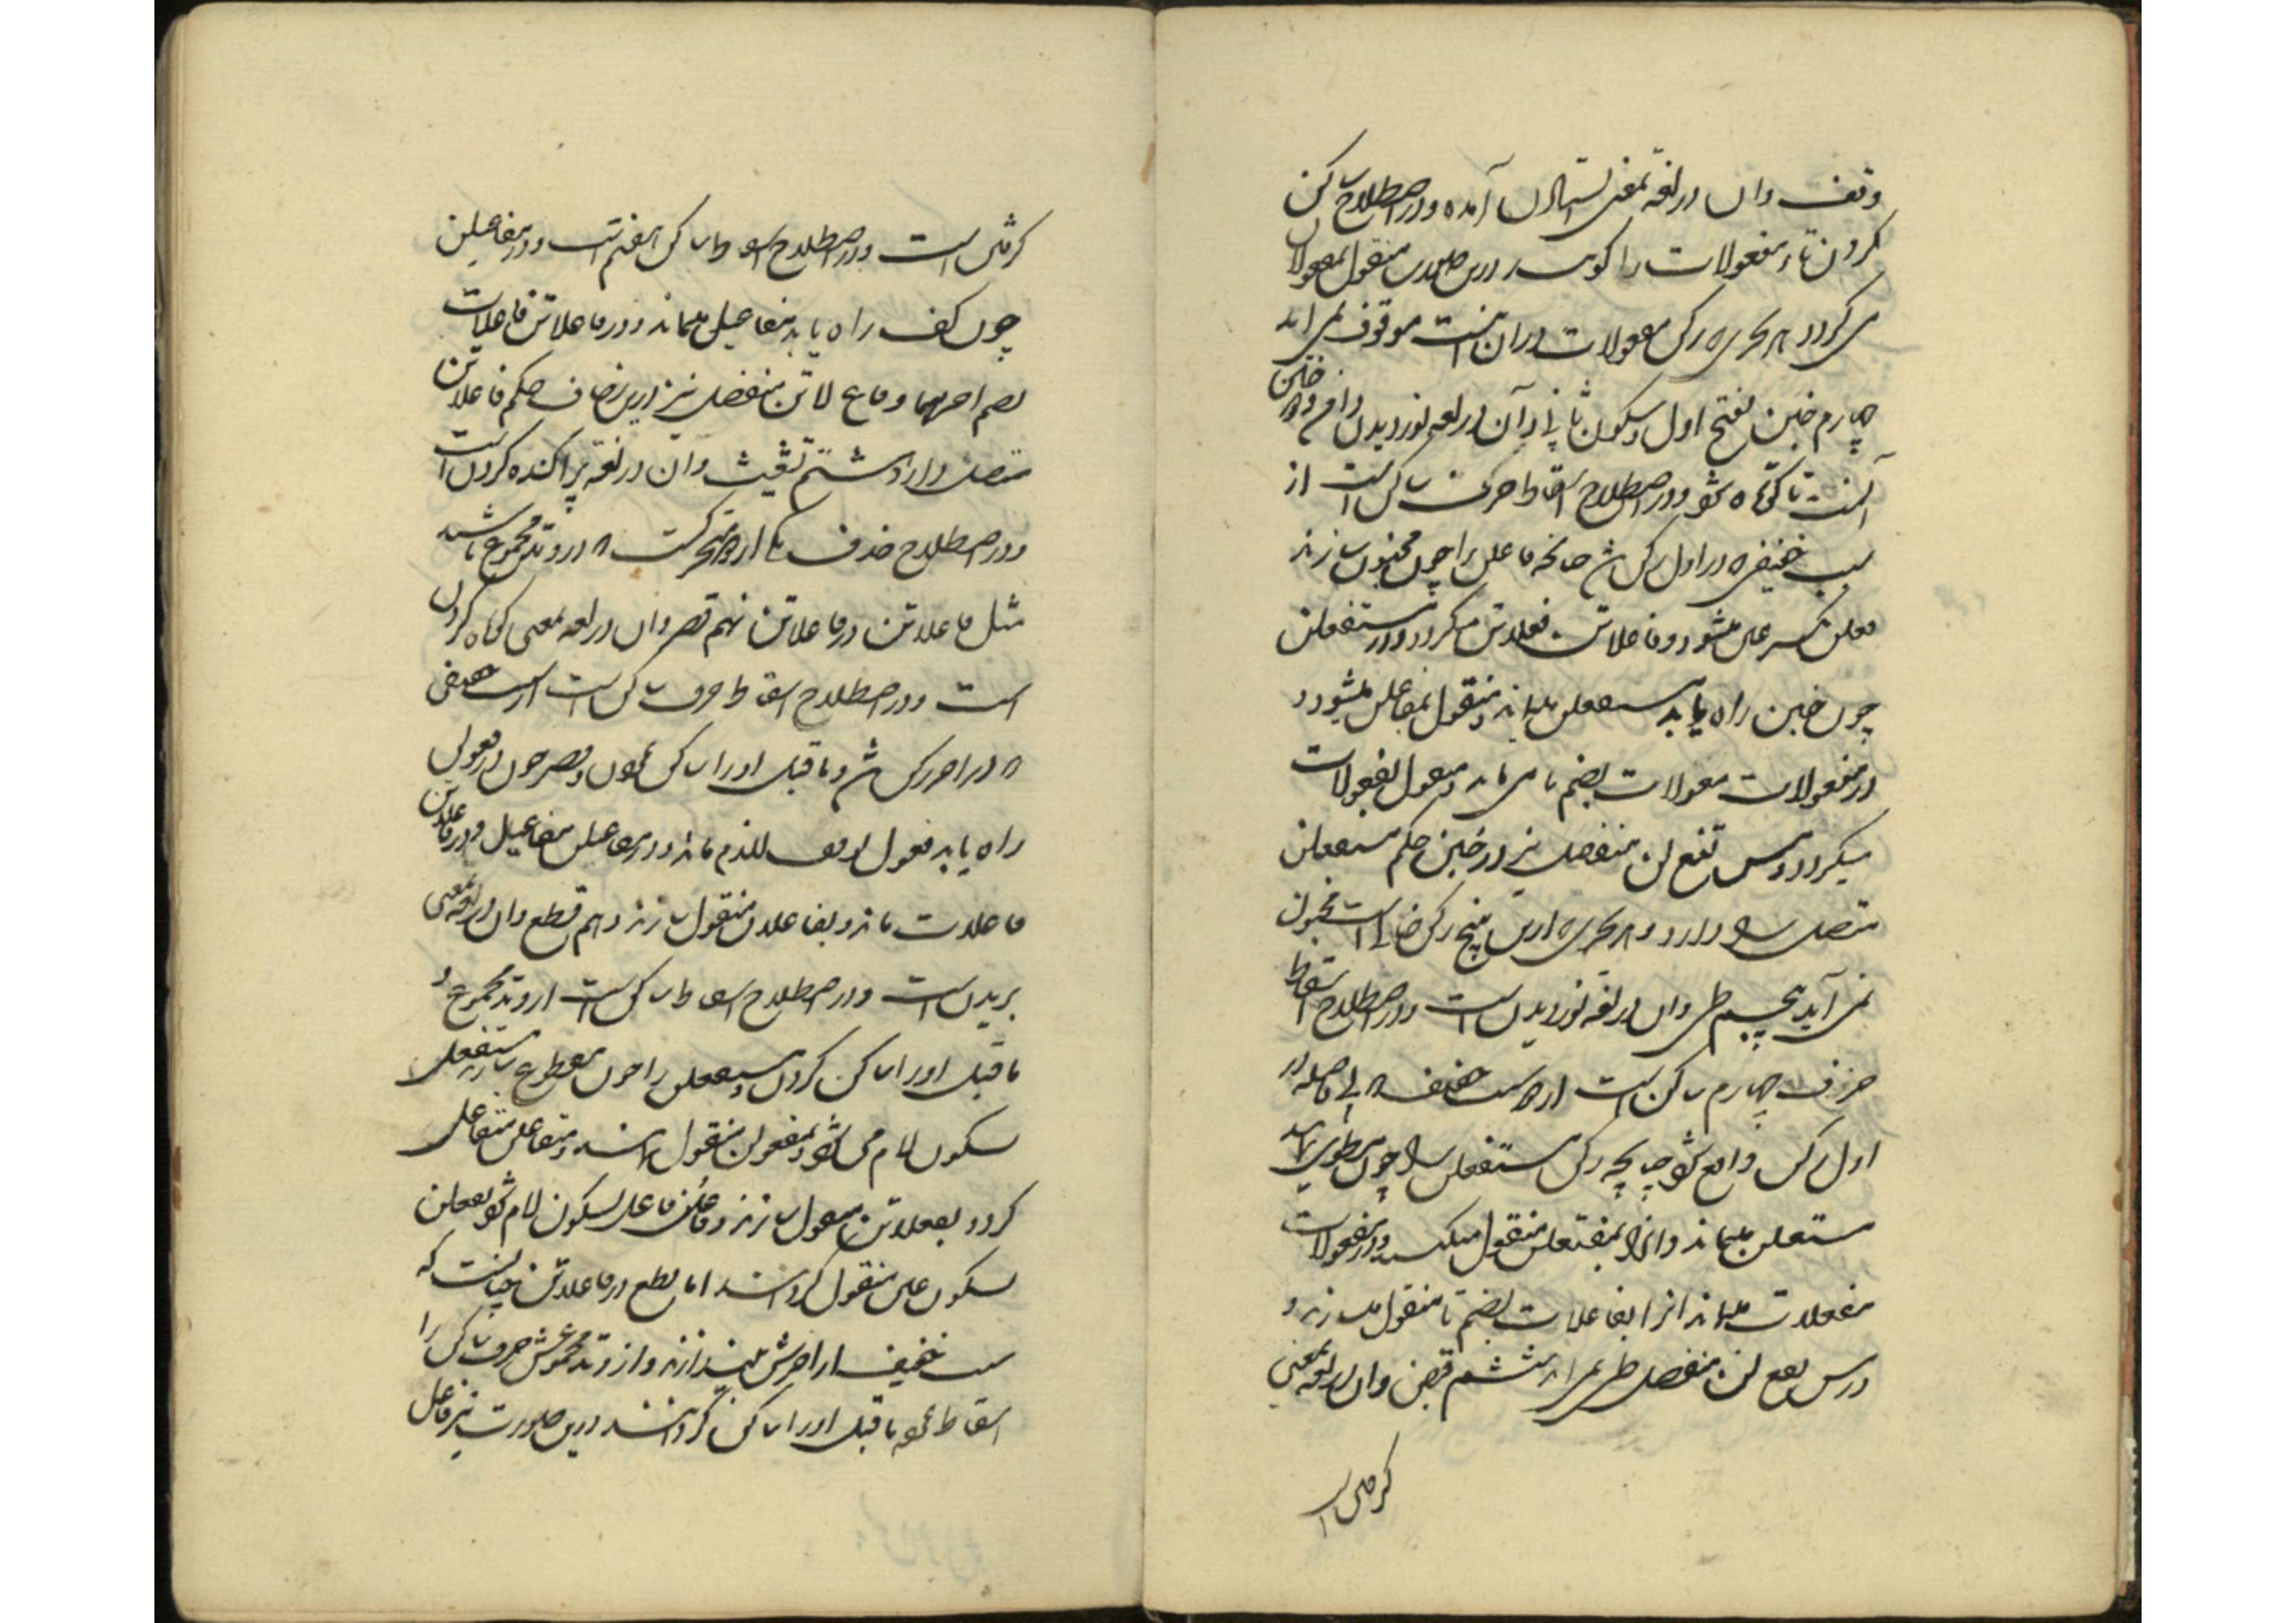 وقف وان در لغة بمعنی استادن آمده و در اصطلاح ساکن
کردن تاء مفعولات را کویند و درین صورت منقول بمفعولان
می کردد و بحری که رکن مفعولات دران نیست موقوف نمی اید
چهارم خبن بفتح اول و سکون ثانی و آن در لغه نوردیدن دامن
آنست تا کوتاه شود و در اصطلاح اسقاط حرف ساکن است از
سبب خفیفی که در اول رکن باشد چنانچه فاعلن را چون مخبون سازند
فعلن بکسر عین میشود و فاعلاتن فعلاتن میکردد و در مستفعلن
چون خبن راه یابد متفعلن میماند و منقول بمفاعلن میشود و
در مفعولات معولات بضم تا می ماند و منقول بفعولات
میکردد و مس تفع لن منفصل نیز در خبن حکم مستفعلن
متصل دارد و بحری که ازین پنج رکن خالی است مخبون
نمی آید پنجم طی وان در لغه نوردیدن است و در اصطلاح اسقاط
حرف چهارم ساکن است از سبب خفیف که بی فاصله در
اول رکن واقع شود چنانچه رکن مستفعلن چون مطوی نمایند
مستعلن میماند وانرا بمفتعلن منقول میکنند و در مفعولات
مفعلات میماند انرا بفاعلات بضم تا منقول میسازند و
در مس تفع لن منفصل طی نمی اید ششم قبض وان در لغه بمعنی
کرفتن است
کرفتن است و در اصطلاح اسقاط ساکن هفتم است و در مفاعیلن
چون کف راه یابد مفاعیل میماند و در فاعلاتن فاعلات
بضم اخرهما و فاع لاتن منفصل نیز درین زحاف حکم فاعلاتن
متصل دارد هشتم تشعیث وان در لغة پراکنده کردن است
و در اصطلاح حذف یکی از دو متحرکست که در وتد مجموع باشد
مثل فاعلاتن در فاعلاتن نهم قصر وان در لغه بمعنی کوتاه کردن
است و در اصطلاح اسقاط حرف ساکن است از سبب خفیفی
که در اخر رکن باشد و ماقبل او را ساکن نمودن و قصر چون در فعولن
راه یابد فعول بوقف لام ماند و در مفاعیلن مفاعیل و در فاعلاتن
فاعلات ماند و بفاعلان منقول سازند دهم قطع وان در لغه بمعنی
بریدن است و در اصطلاح اسقاط ساکن است از وتد مجموع و
ماقبل او را ساکن کردن و مستفعلن را چون مقطوع سازند مستفعل
بسکون لام می شود و بمفعولن منقول دانند و متفاعلن متفاعل
کردد بفعلاتن منقول سازند و فاعلن فاعل بسکون لام شود بفعلن
بسکون عین منقول کردانند اما قطع در فاعلاتن چنانست که
سبب خفیف از اخرش میندازند و از وتد مجموعش حرف ساکن را
اسقاط نموده ماقبل او را ساکن کردانند درین صورت نیز فاعل